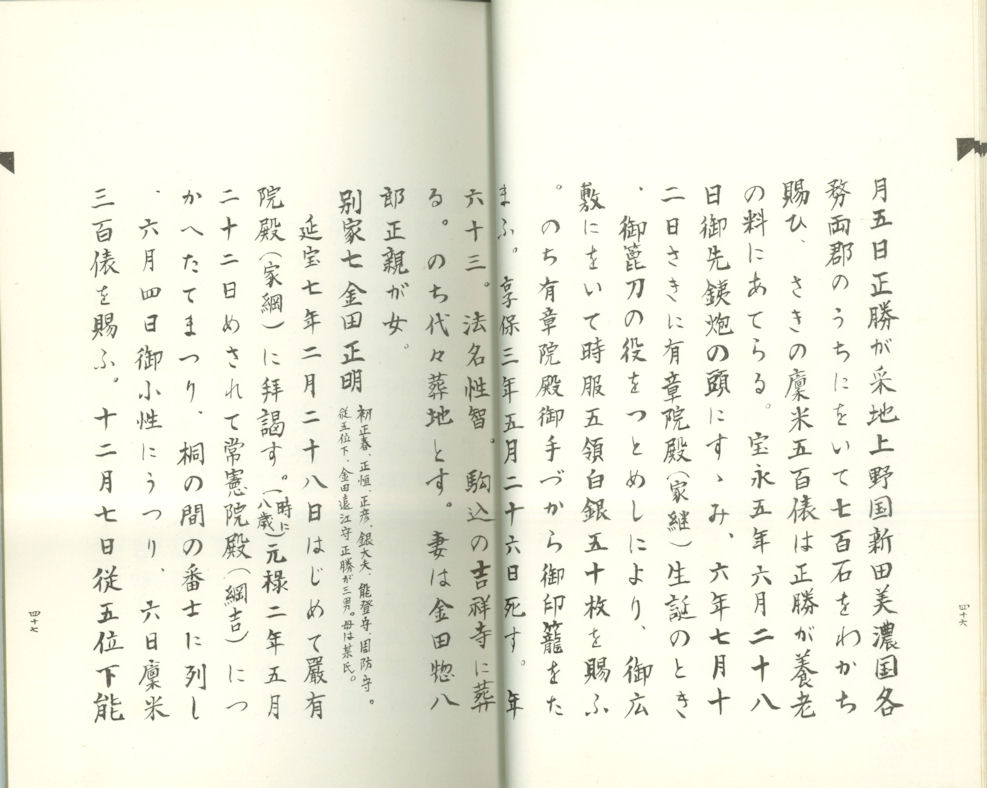 月五日正勝が采地上野国新田美濃国各
務両郡のうちにをいて七百石をわかち
賜ひ、さきの廩米五百俵は正勝が養老
の料にあてらる。宝永五年六月二十八
日御先銕炮の頭にすゝみ、六年七月十
二日さきに有章院殿(家継)生誕のとき
、御蓖刀の役をつとめしにより、御広
敷にをいて時服五領白銀五十枚を賜ふ
。のち有章院殿御手づから御印籠をた
まふ。享保三年五月二十六日死す。年
四十六
六十三。法名性智。駒込の吉祥寺に葬
る。のち代々葬地とす。妻は金田惣八
郎正親が女。
別家七金田正明
初正春、正恒、正彦、銀大夫、能登守、周防守。
従五位下、金田遠江守正勝が三男。母は某氏。
延宝七年二月二十八日はじめて嚴有
院殿(家綱)に拝謁す。(時に八歳)元禄二年五月
二十二日めされて常憲院殿(綱吉)につ
かへたてまつり、桐の間の番士に列し
、六月四日御小性にうつり、六日廩米
三百俵を賜ふ。十二月七日従五位下能
四十七